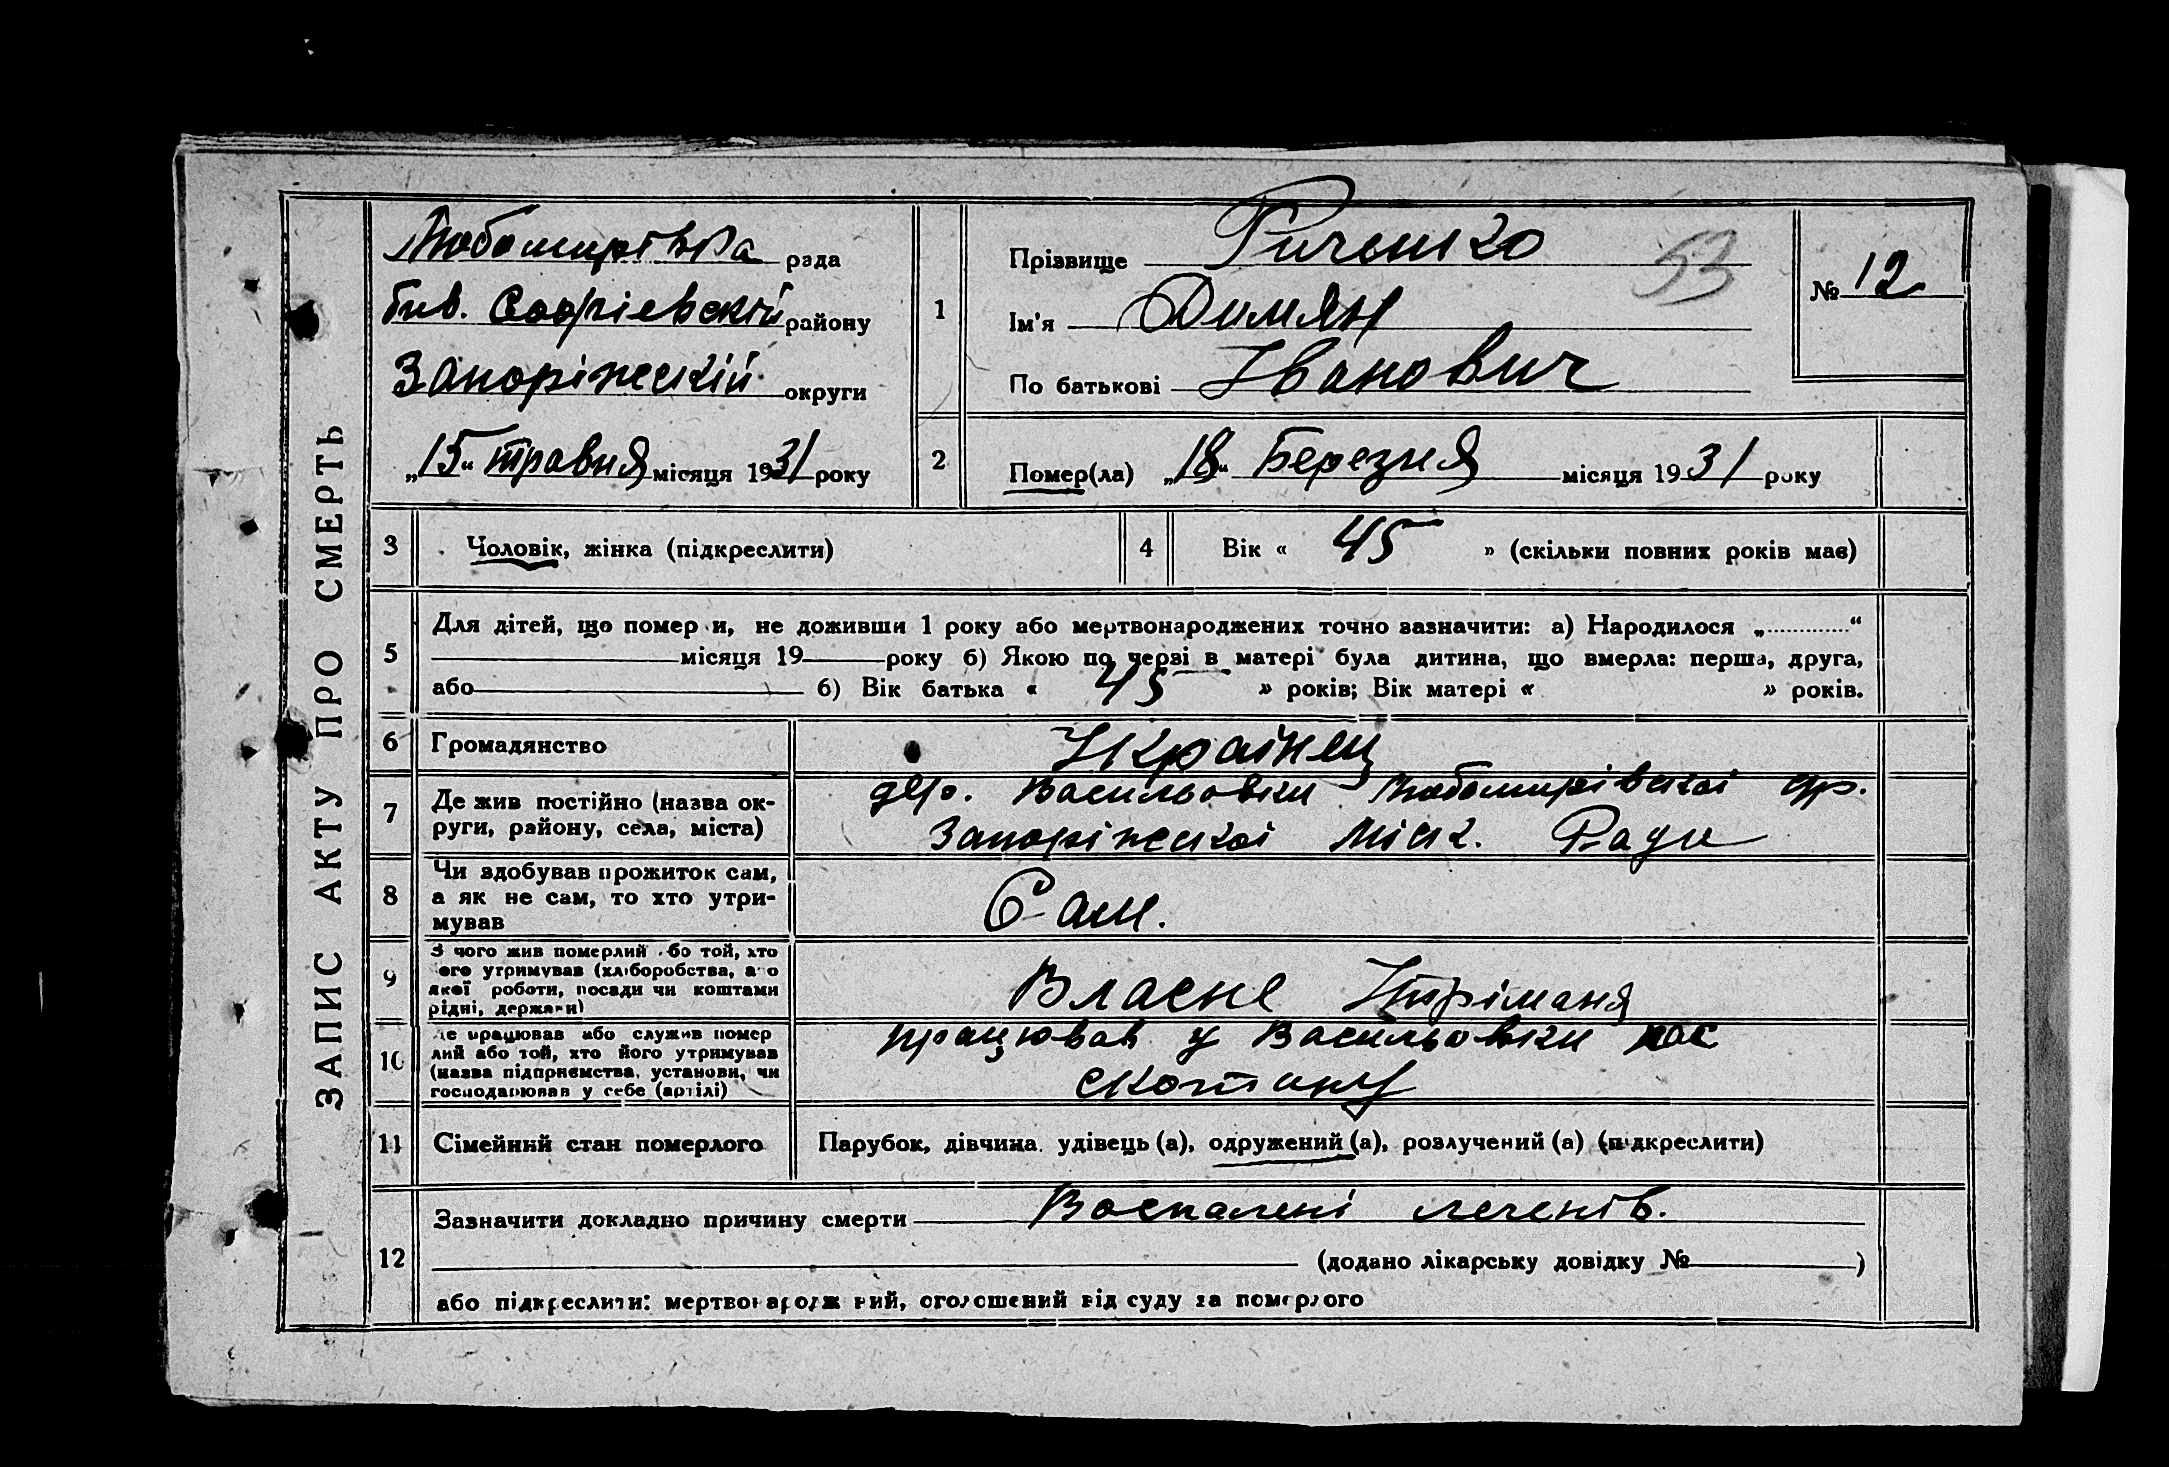 ЗАПИС АКТУ ПРО СМЕРТЬ
Любомирівка рада
бив. Софіевскій району
Запоріжскій округи
„15“ травня місяця 1931 року
1
Прізвище Риченко
53
Ім'я Димян
По батькові Іванович
№ 12
2
Помер(ла) „18“ Березня місяця 1931 року
3 Чоловік, жінка (підкреслити)
4 Вік « 45 » (скільки повних років має)
5
Для дітей, що помер и, не доживши 1 року або мертвонароджених точно зазначити: а) Народилося „ “
місяця 19 року б) Якою по черзі в матері була дитина, що вмерла: перша, друга,
або б) Вік батька « 45 » років; Вік матері « » років.
6 Громадянство Українец
7 Де жив постійно (назва ок-
руги, району, села, міста)
Васильовки Любомирівскоі
Запоріжскоі Міск. Ради
8 Чи здобував прожиток сам,
а як не сам, то хто утри-
мував
Сам.
9 З чого жив померлий бо той, хто
його утримував (хліборобства, або
якої роботи, посади чи коштами
рідні, держави)
Власне Утріманя
10 Де працював або служив помер
лий або той, хто його утримував
(назва підприємства, установи, чи
господарював у себе (артілі)
працював у Васильовки пас
скотину
11 Сімейний стан померлого Парубок, дівчина, удівець (а), одружений (а), розлучений (а) (підкреслити)
12
Зазначити докладно причину смерти Воспалені легенів.
(додано лікарську довідку № )
або підкреслити: мертвонароджений, оголошений від суду за померлого